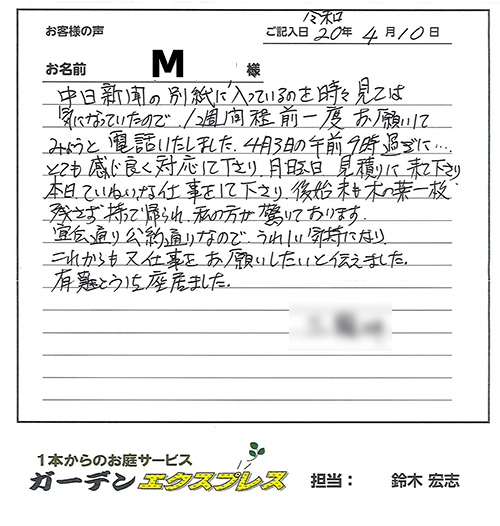 お客様の声
令和
ご記入日 20年 4月10日
お名前 M 様
中日新聞の別紙に入っているのを時々見ては
気になっていたので、1週間程前一度お願いして
みようと電話いたしました。4月3日の午前9時過ぎに…
とても感じ良く対応して下さり、月曜日 見積りに来て下さり
本日、ていねいな仕事をして下さり、後始末も木の葉一枚
残さず持て帰られ、私の方が驚いております。
宣伝通り公約通りなので、うれしい気持になり
これからも又仕事をお願いしたいと伝えました。
有難とうご座居ました。
1本からのお庭サービス
ガーデンエクスプレス 担当： 鈴木 宏志